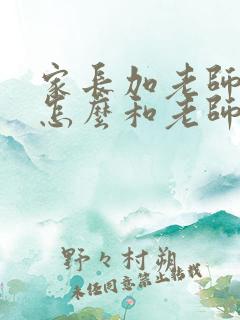 家長加老師
怎麼和老師
野々村朔
未任同意禁止轉載